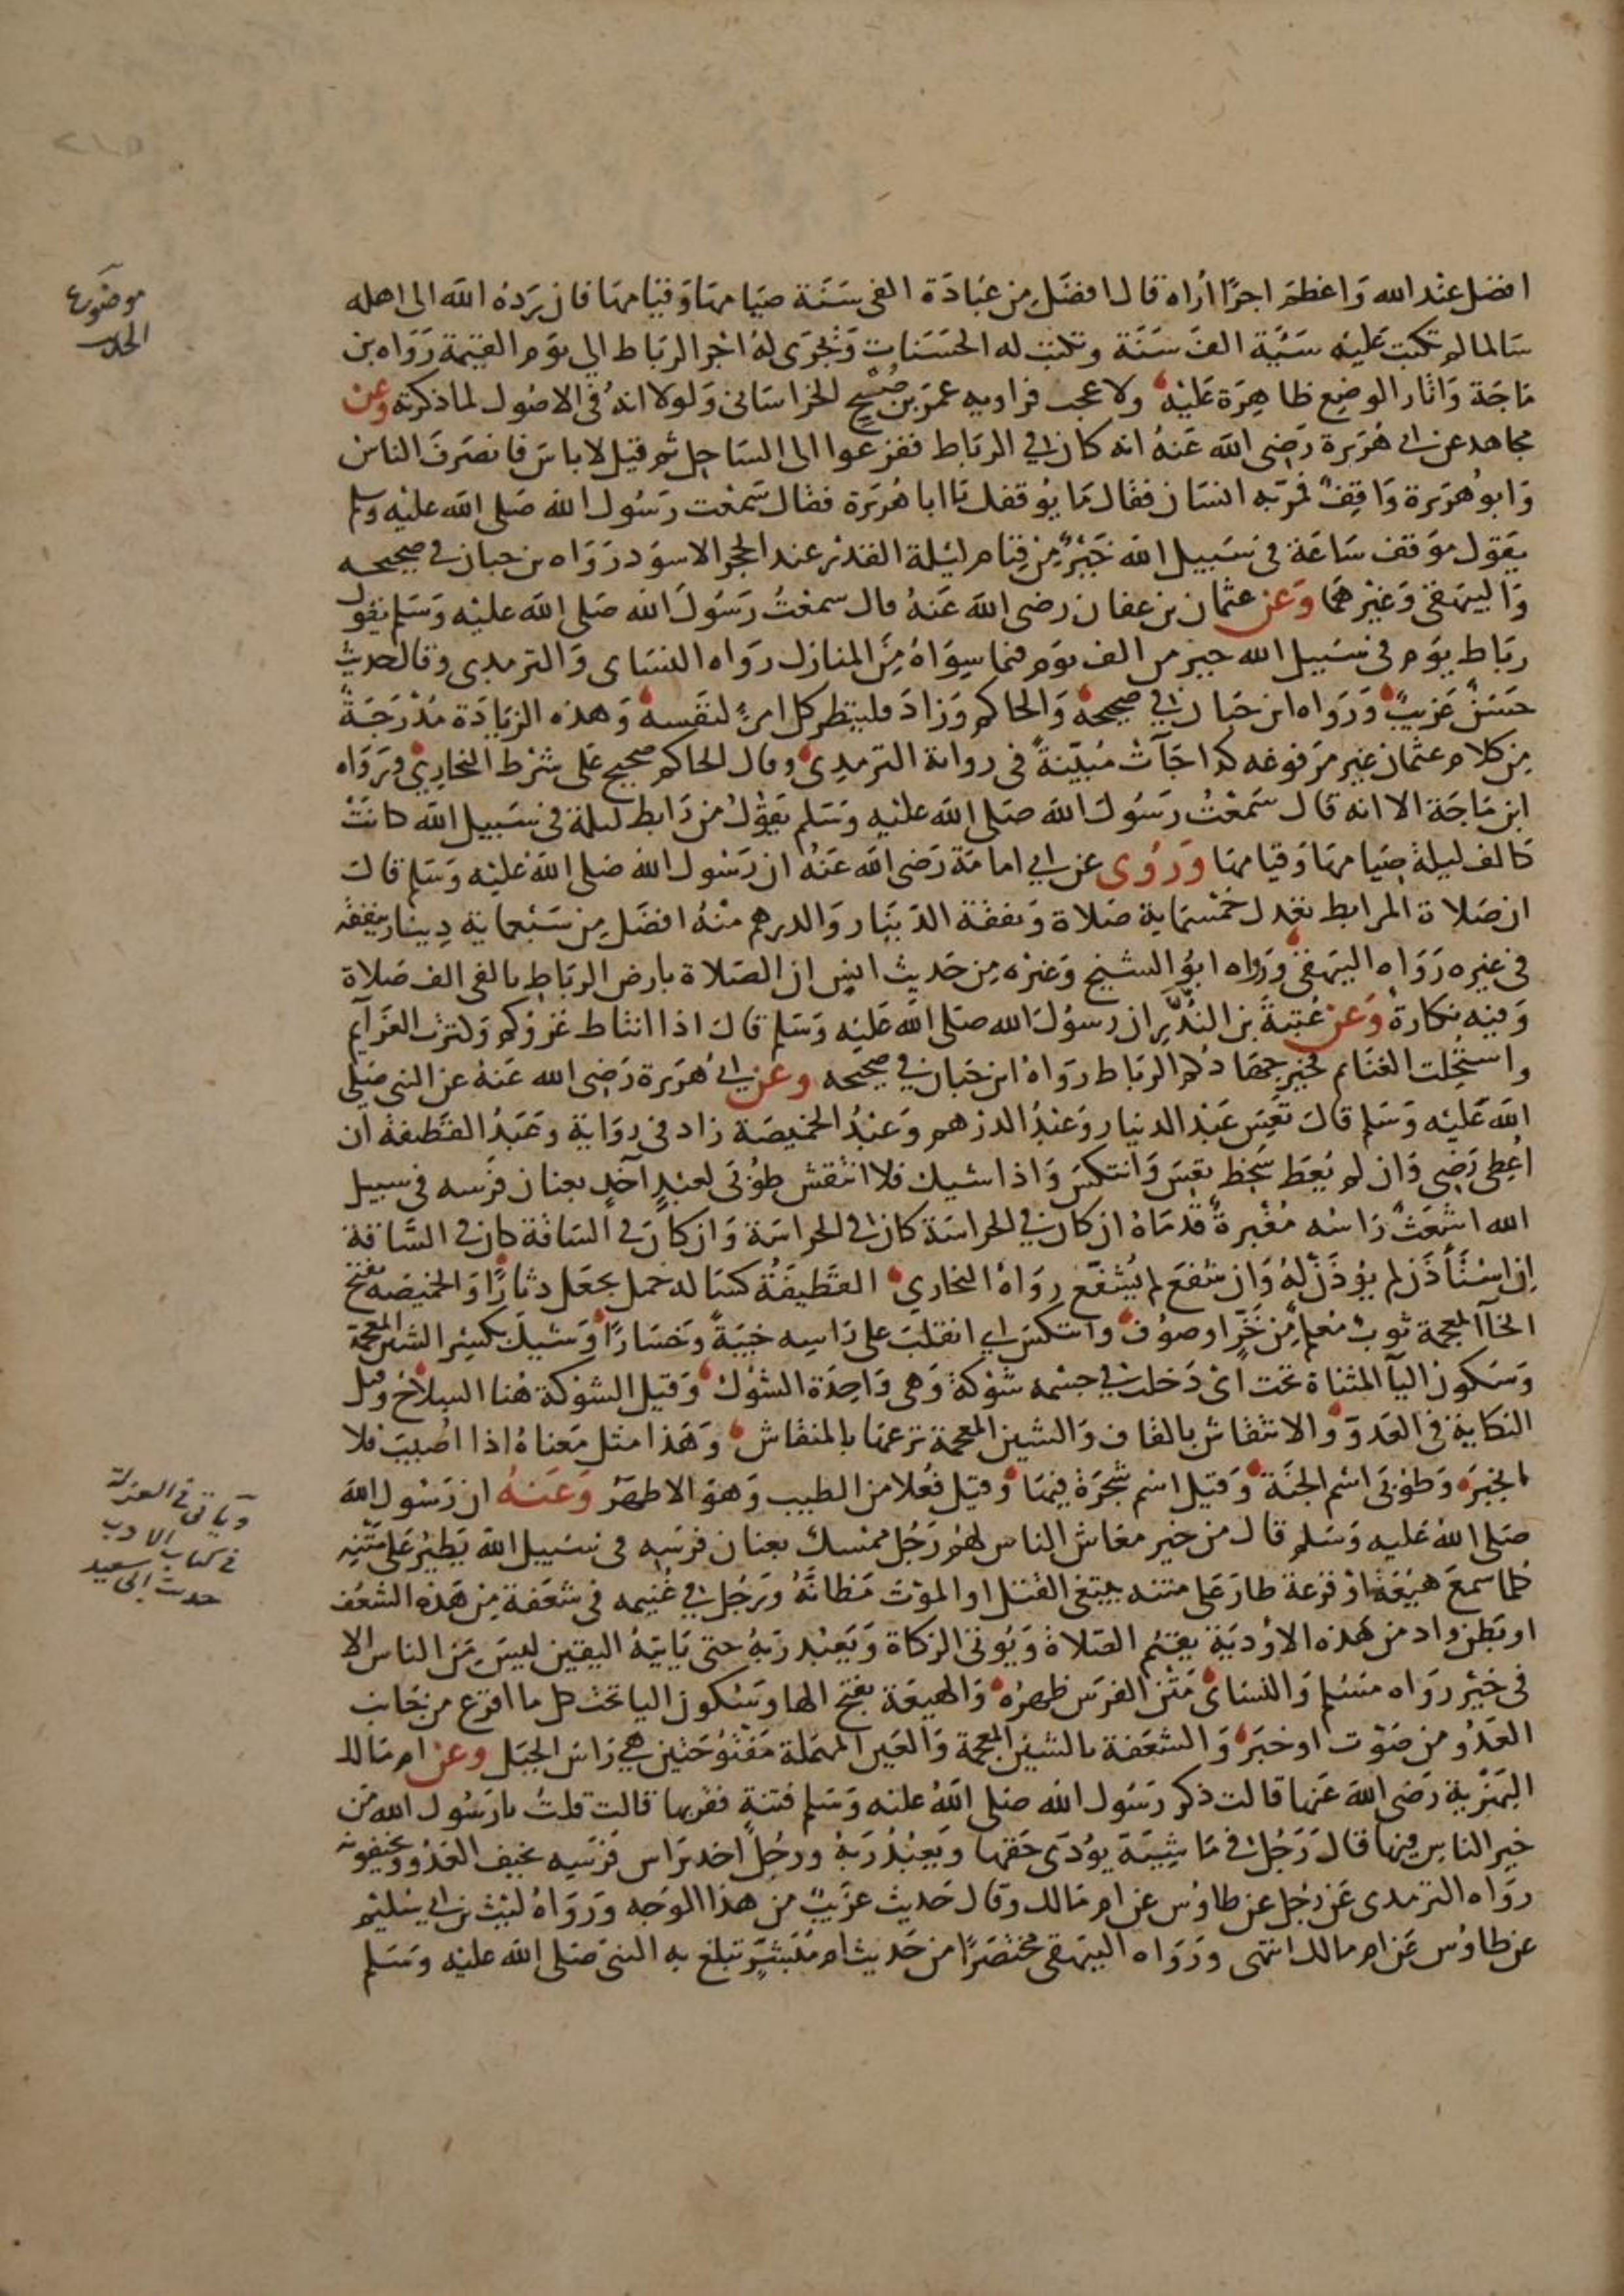 افضل عند الله وَاعظمَ اجرًا أراه قال افضَل من عبَادَة الفى سَنَة صيَامهَا وَقيَامهَا فان يرَده الله الى اهله
سَالما لم تكتب عَليْه سَيّئة الفَ سَنَة وتكتب له الحَسَنات وَيُجرَى لهُ اجر الرباط الي يوم القيٰمة رَوَاه بن
مَاجَة وَاثار الوضع ظاهِرَة عَليْه ولا عجب فراويه عمرَ بن صُبْح الخراسَانى وَلولا انهُ فى الاصُول لما ذكرته وعن
مجاهد عن ابى هُرَيرة رَضى الله عَنهُ انه كان في الرباط ففزعوا الى السَاحِل ثم قيل لا باسَ فانصَرفَ الناسُ
وَابو هرَيرة وَاقِفٌ فمرّ به انسَان فقال مَا يُوقفك يَا ابا هُرَيرَة فقال سَمعْت رَسُول الله صَلى الله عليْه وسلم
يقول موَقف سَاعَة في سَبيل الله خَيْرٌ مِن قيام ليْلة القدْر عند الحجر الاسوَد رَوَاه بن حبان في صحيحه
وَالبيهَقى وَغيْرهمَا وَعن عثمان بن عفان رضى الله عَنهُ قال سمعْتُ رَسُولَ الله صَلى الله عليْه وَسَلم يقول
ربَاط يوَم فى سَبيل الله خير من الف يوم فيما سِوَاهُ مِنَ المنازل رواه النسَاى وَالترمدى وقال حديث
حسَنٌ غَريبٌ وَرَوَاه ابن حبان في صحيحهُ وَالحاكم وَزادَ فلينظر كل امرئٍ لنفسه وَهذه الزيَادَة مُدْرَجَةٌ
مِن كلام عثمان غير مرَفوعَه كذا جَآت مُبيّنةً فى رواية الترمدِى وقال الحاكم صحيح عَلى شرْط البخَارِيِ وَرَوَاه
ابن مَاجَة الا انه قال سَمعْتُ رَسُولَ الله صَلى الله عليْه وَسَلم يقوْلُ من رَابط ليلة فى سَبيل الله كانَتْ
كَالف ليلة صيَامهَا وَقيَامهَا وَرُوى عن ابي امامَة رَضى الله عَنهُ ان رَسُول الله صَلى الله عَليْه وَسَلم قالَ
ان صَلاة المرَابط تعْدل خمْسَمايَة صَلاة وَنفقة الدّينَار وَالدرهم منْهُ افضَل مِن سَبعماية دينار ينفقه
فى غيره رَوَاه البيهَقىُ وَرواه ابوُ الشيخ وَغيره مِن حَديث انسٍ ان الصَلاة بارض الرباط بالفى الف صَلاة
وَفيه نكارة وَعن عُتبَةَ بن النُّدَّرِ ان رسُولَ الله صَلى الله عَليه وَسَلم قالَ اذا انتاط غزوكم وَكثرت العَزآيم
واستُحِلت الغنَايم فخير جهَادكم الربَاط روَاهُ ابن حَبان في صحيحه وعن ابى هُرَيرَة رَضى الله عَنهُ عن النبى صَلى
الله عَليْه وَسَلم قالَ تعِسَ عَبْد الدينار وَعبْدُ الدرْهم وَعَبْدُ الخميصَة زاد فى رِوَايَة وعَبْدُ القَطيفة ان
اعُطِى رَضِى وَان لم يُعَط سَخِط تعِسَ وَانتكسَ وَاذا شيك فلا انتقش طوُبَى لعَبْدٍ آخذٍ بعنان فَرَسه فى سبيل
الله اشعَثٌ رَاسُه مُغْبرةٌ قدَمَاهُ ان كان في الحراسَة كان فى الحراسَة وَان كانَ في السَاقة كان في السَّاقة
اِن اسْتَأذَن لم يوْذَنْ لهُ وَان شفعَ لم يُشفّعْ روَاهُ البخاري القَطِيفَةُ كسَا له خمل يجعَل دثارًا وَالخميصَه بفتح
الخآ المعجمة ثوبٌ مُعلمٌ من خَزٍ اوصوُف وانتكسَ اى انقلبَ عَلى رَاسِه خيبَةً وَخسَارًا وَشيكَ بكسرِ الشين المعجمة
وَسَكون اليآ المثناة تحَت اى دَخلت في جسْمه شَوْكة وَهى وَاحِدَة الشوْك وَقيل الشوْكة هُنا السِلاح وقيل
النكاية فى العَدوّ وَالانتقاش بالقاف وَالشين المعجمة نزعهَا بالمنقاش وَهَذا مثل مَعناهُ اذا اصُيبَ فلا
انجبَره وَطوُبَى اسْم الجنَة وَقيل اسْم شجَرَة فيهَا وَقيل فعُلا من الطيب وَهوَ الاظهَرُ وَعَنهُ ان رَسُول الله
صَلى اللهُ عَليه وَسَلم قال من خير مَعاش الناس لهُم رَجُل ممْسك بعنان فرَسِه فى سَبيل الله يَطيْر عَلى مَتْنه
كلما سمعَ هيْعَة اوْ فزعَة طارَ عَلى متنه يبتغى القتل او الموْتَ مَظانَّهُ وَرَجُل في غُنيمه فى شعَفة مِن هَذه الشعَف
او بَطن واد من هَذه الاوْديَة يقيْم الصَلاة وَيُوتى الزكاة وَيَعبْد ربَهُ حتى يَاتيهُ اليقين ليسَ مِنَ الناس الا
فى خيْرٍ رَوَاه مسْلم وَالنسَاى مَتنُ الفرَس ظهرُه وَالهيعَة بفتح الها وَسُكون اليا تحَت كل ما افزع من جَانب
العَدُو من صَوْت او خبَر وَالشعَفة بالشين المعجمة وَالعَين المهمَلة مَفتوُحَتين هى رَاس الجبَل وعن ام مَالك
البَهزْيَة رَضى الله عَنهَا قالت ذكر رَسُول الله صَلى اللهُ عليه وَسَلم فتنة فقربها قالت قلتُ يارَسُول الله مَن
خير الناسِ فيهَا قالَ رَجُل فى مَا شِيتَه يؤدّى حَقهَا وَيعَبْدُ رَبهُ ورَجُل اخد براس فرَسِه يخيف العَدُوّ ويخيفونه
روَاه الترمدى عَن رَجُل عن طاوُس عن ام مَالك وقال حَديث غرَيبٌ من هَذا الوَجه وَرَوَاهُ ليْث بن ابي سُليْم
عن طاوُس عَن ام مالك انتهى ورَوَاه البيَهقى مختصَرًا من حَديث ام مُبَشّر تبلغ به النبى صَلى الله عليْه وَسَلم
موضوع
الحدث
وياتى فى العزلة
فى كتاب الادب
حديث ابى سعيد